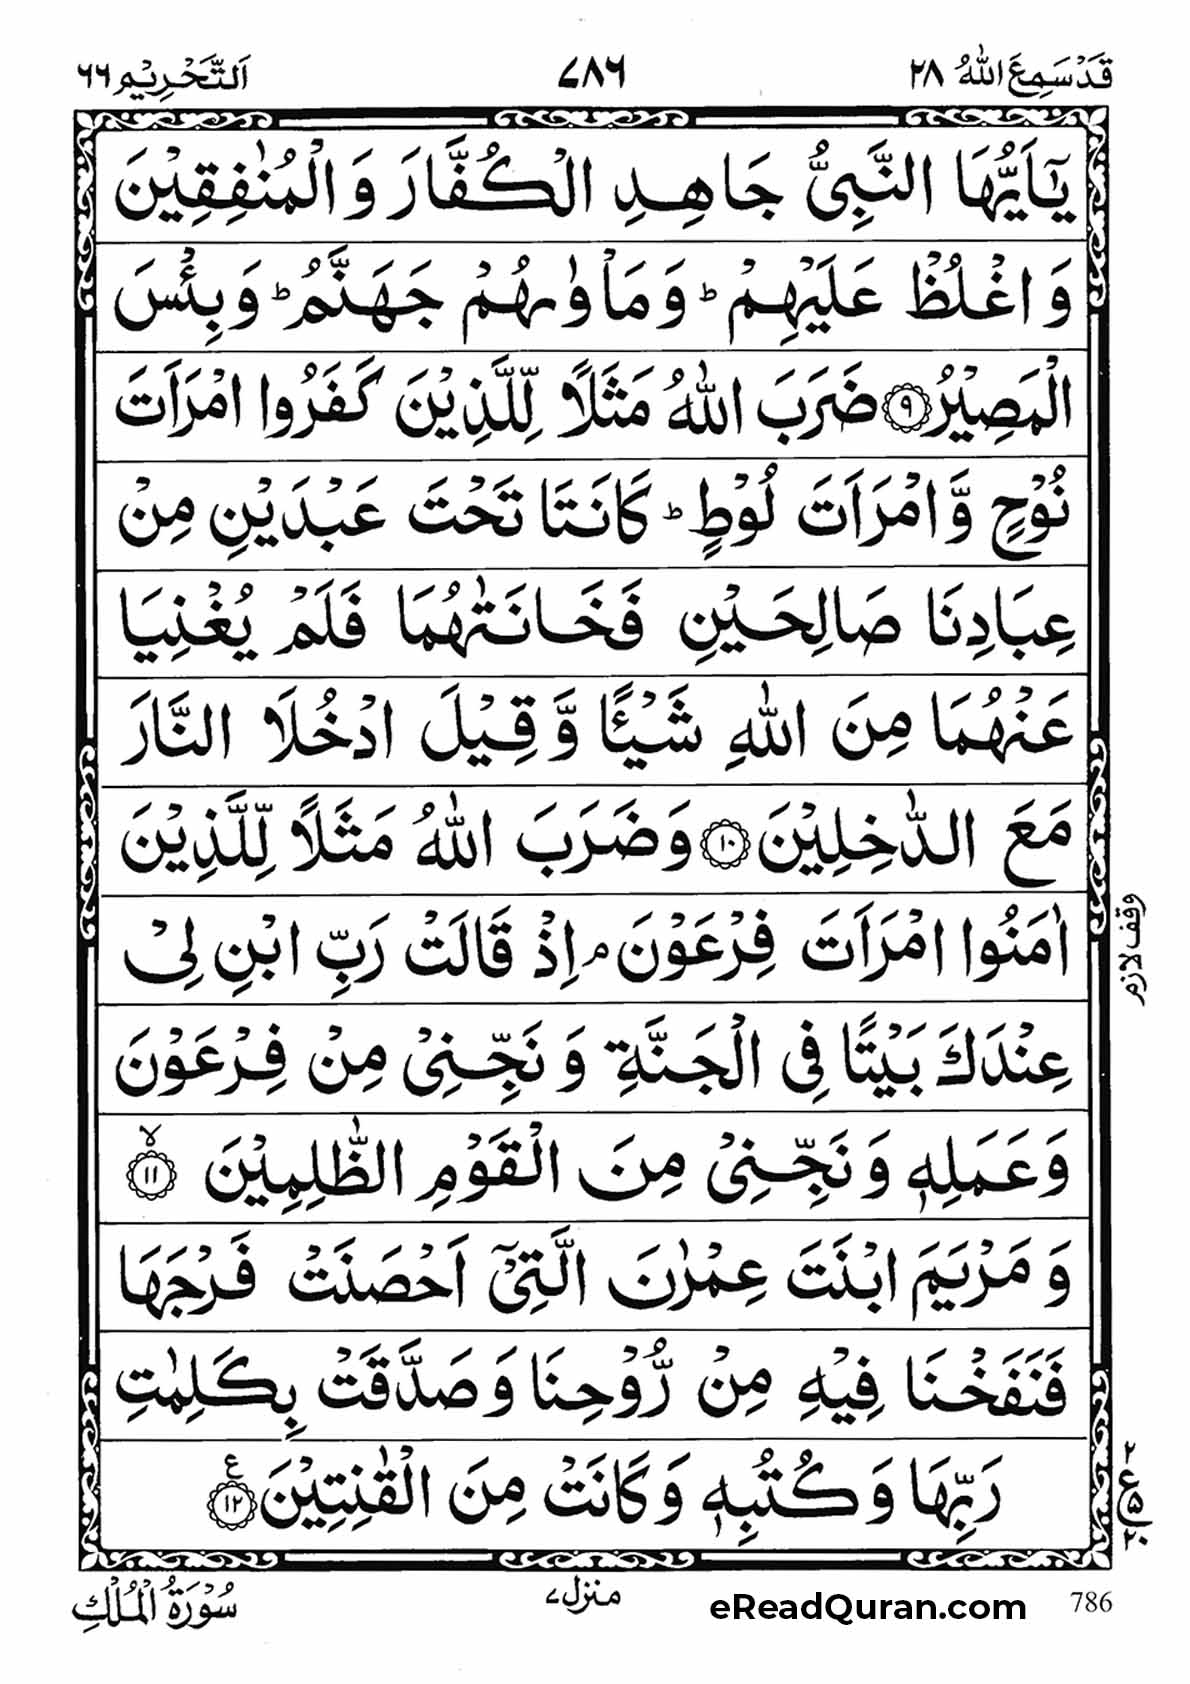 قَدْ سَمِعَ اللّٰهُ ٢٨
٧٨٦
اَلتَّحْرِيْم ٦٦
يٰۤاَيُّهَا النَّبِىُّ جَاهِدِ الْكُفَّارَ وَ الْمُنٰفِقِيْنَ
وَ اغْلُظْ عَلَيْهِمْ ؕ وَ مَاْوٰىهُمْ جَهَنَّمُ ؕ وَ بِئْسَ
الْمَصِيْرُ ۹ ضَرَبَ اللّٰهُ مَثَلًا لِّلَّذِيْنَ كَفَرُوا امْرَاَتَ
نُوْحٍ وَّ امْرَاَتَ لُوْطٍ ؕ كَانَتَا تَحْتَ عَبْدَيْنِ مِنْ
عِبَادِنَا صَالِحَيْنِ فَخَانَتٰهُمَا فَلَمْ يُغْنِيَا
عَنْهُمَا مِنَ اللّٰهِ شَيْـًٔا وَّ قِيْلَ ادْخُلَا النَّارَ
مَعَ الدّٰخِلِيْنَ ۱۰ وَ ضَرَبَ اللّٰهُ مَثَلًا لِّلَّذِيْنَ
اٰمَنُوا امْرَاَتَ فِرْعَوْنَ ۘ اِذْ قَالَتْ رَبِّ ابْنِ لِىْ
عِنْدَكَ بَيْتًا فِى الْجَنَّةِ وَ نَجِّنِىْ مِنْ فِرْعَوْنَ
وَ عَمَلِهٖ وَ نَجِّنِىْ مِنَ الْقَوْمِ الظّٰلِمِيْنَ ۙ ۱۱
وَ مَرْيَمَ ابْنَتَ عِمْرٰنَ الَّتِىْۤ اَحْصَنَتْ فَرْجَهَا
فَنَفَخْنَا فِيْهِ مِنْ رُّوْحِنَا وَ صَدَّقَتْ بِكَلِمٰتِ
رَبِّهَا وَ كُتُبِهٖ وَ كَانَتْ مِنَ الْقٰنِتِيْنَ ۱۲ ع
وقف لازم
٢
ع
۵
٢٠
786
eReadQuran.com
منزل ٧
سُوْرَةُ الْمُلْكِ